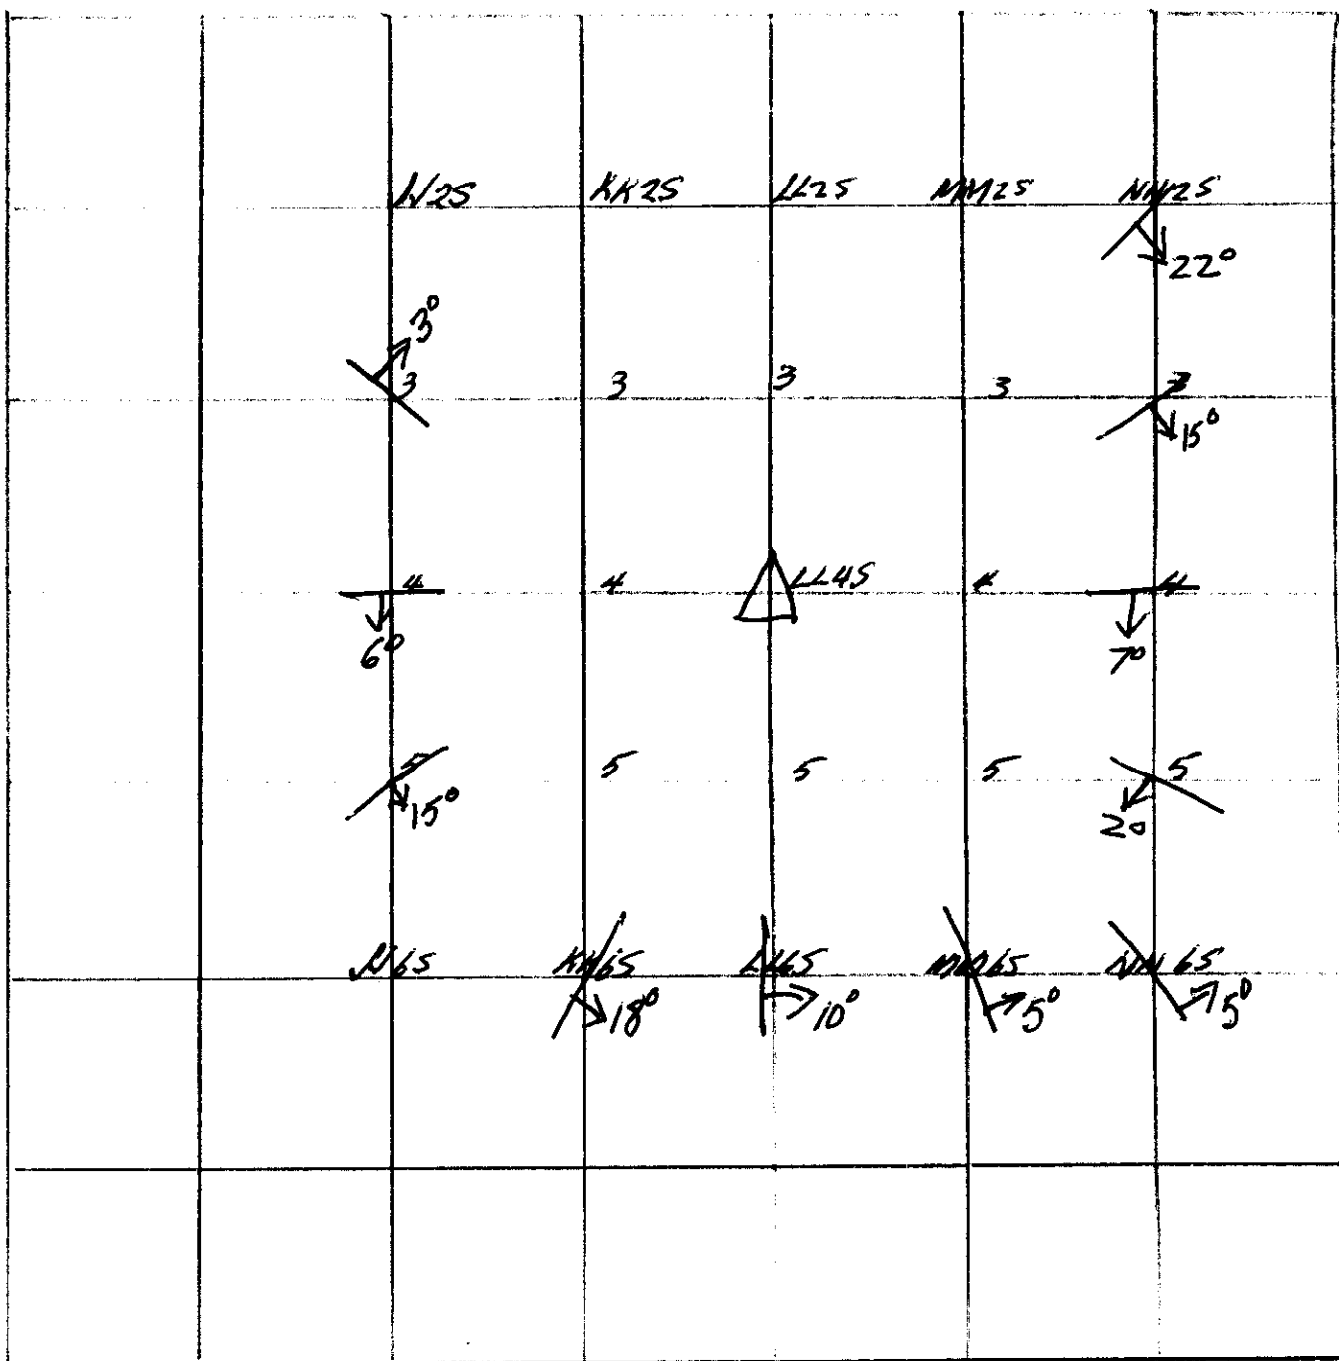 JJ25 KK25 LL25 MM25 NN25
22°
3°
3 3 3 3 3
15°
4 4 LL45 4 4
6° 7°
5 5 5 5 5
15° 2°
JJ65 KK65 LL65 MM65 NN65
18° 10° 5° 5°